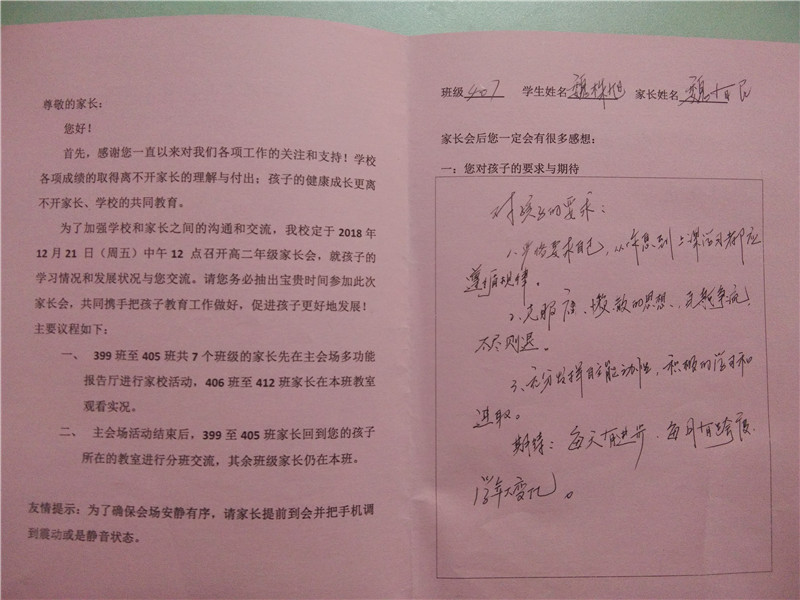 尊敬的家长:
您好!
首先，感谢您一直以来对我们各项工作的关注和支持！学校
各项成绩的取得离不开家长的理解与付出；孩子的健康成长更离
不开家长、学校的共同教育。
为了加强学校和家长之间的沟通和交流，我校定于 2018 年
12 月 21 日（周五）中午 12 点召开高二年级家长会，就孩子的
学习情况和发展状况与您交流。请您务必抽出宝贵时间参加此次
家长会，共同携手把孩子教育工作做好，促进孩子更好地发展！
主要议程如下：
一、 399 班至 405 班共 7 个班级的家长先在主会场多功能
报告厅进行家校活动，406 班至 412 班家长在本班教室
观看实况。
二、 主会场活动结束后，399 至 405 班家长回到您的孩子
所在的教室进行分班交流，其余班级家长仍在本班。
友情提示：为了确保会场安静有序，请家长提前到会并把手机调
到震动或是静音状态。
班级 407 学生姓名 魏 家长姓名 魏
家长会后您一定会有很多感想：
一：您对孩子的要求与期待
对孩子的要求：
1、严格要求自己，从作息到上课学习都应
遵循规律。
2、克服 的思想，
不进则退。
3、充分发挥自主能动性，积极的学习和
进取。
期待：每天有进步，每月有跨度，
学年大变化。